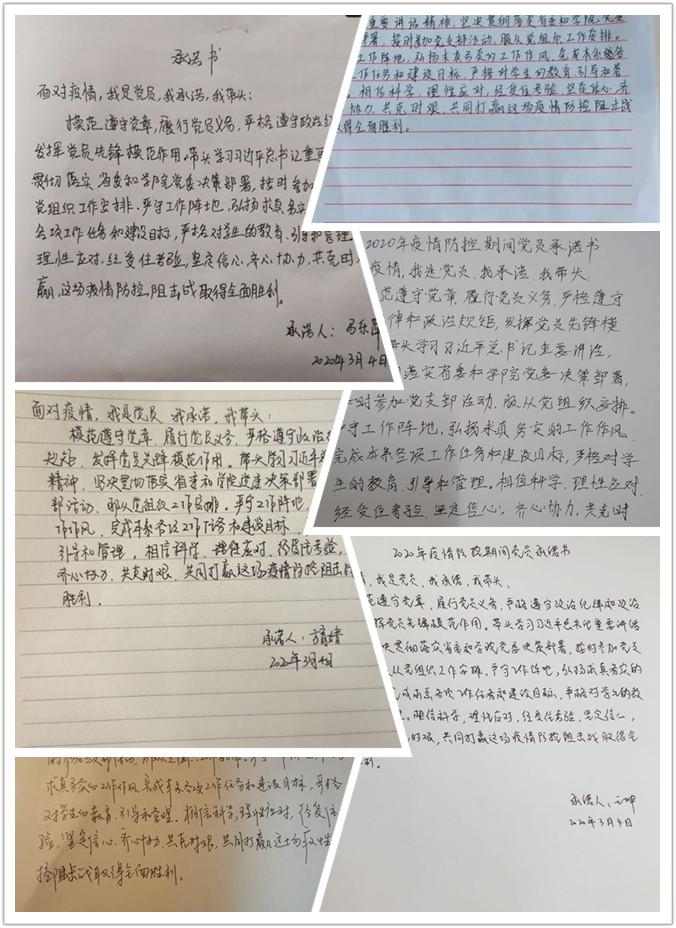 承诺书
面对疫情，我是党员，我承诺，我带头：
模范遵守党章，履行党员义务，严格遵守政治纪
发挥党员先锋模范作用。带头学习习近平总书记重要
贯彻落实省委和学院党委决策部署，按时参加
党组织工作安排。严守工作阵地，弘扬求真务实
各项工作任务和建设目标，严格对学生的教育、引导和管理
理性应对，经受住考验，坚定信心，齐心协力，共克时
赢这场疫情防控阻击战取得全面胜利。
承诺人：
2020年3月4日
重要讲话精神，坚决贯彻落实省委和学院党委
部署，按时参加党支部活动，服从党组织工作安排。
工作阵地，弘扬求真务实的工作作风，完成本系各
工作任务和建设目标，严格对学生的教育、引导和管
相信科学，理性应对，经受住考验，坚定信心，齐
协力，共克时艰，共同打赢这场疫情防控阻击战
取得全面胜利。
2020年疫情防控期间党员承诺书
疫情，我是党员，我承诺，我带头
范遵守党章，履行党员义务，严格遵守
律和政治规矩，发挥党员先锋模
带头学习习近平总书记重要讲话
落实省委和学院党委决策部署，
时参加党支部活动，服从党组织安排。
守工作阵地，弘扬求真务实的工作作风
完成本系各项工作任务和建设目标，严格对学
生的教育、引导和管理。相信科学，理性应对，
经受住考验，坚定信心，齐心协力，共克时
面对疫情，我是党员，我承诺，我带头：
模范遵守党章，履行党员义务，严格遵守政治
规矩，发挥党员先锋模范作用。带头学习习近平
精神，坚决贯彻落实省委和学院党委决策部署
部活动，服从党组织工作安排。严守工作阵地
工作作风，完成本系各项工作任务和建设目标
引导和管理，相信科学，理性应对，经受住考验，
齐心协力，共克时艰，共同打赢这场疫情防控阻击战
胜利。
承诺人：
2020年3月4日
2020年疫情防控期间党员承诺书
，我是党员，我承诺，我带头、
范遵守党章，履行党员义务，严格遵守政治纪律和政治
挥党员先锋模范作用。带头学习习近平总书记重要讲话
决贯彻落实省委和学院党委决策部署，按时参加党支
从党组织工作安排。严守工作阵地，弘扬求真务实的
完成本系各项工作任务和建设目标，严格对学生的教
理。相信科学，理性应对，经受住考验，坚定信心，
时艰，共同打赢这场疫情防控阻击战取得全
利。
承诺人：
2020年3月4日
求真务实的工作作风，完成本系各项工作任务和建设目标，严格
对学生的教育、引导和管理。相信科学，理性应对，经受住
验，坚定信心，齐心协力，共克时艰，共同打赢这场疫情
控阻击战取得全面胜利。